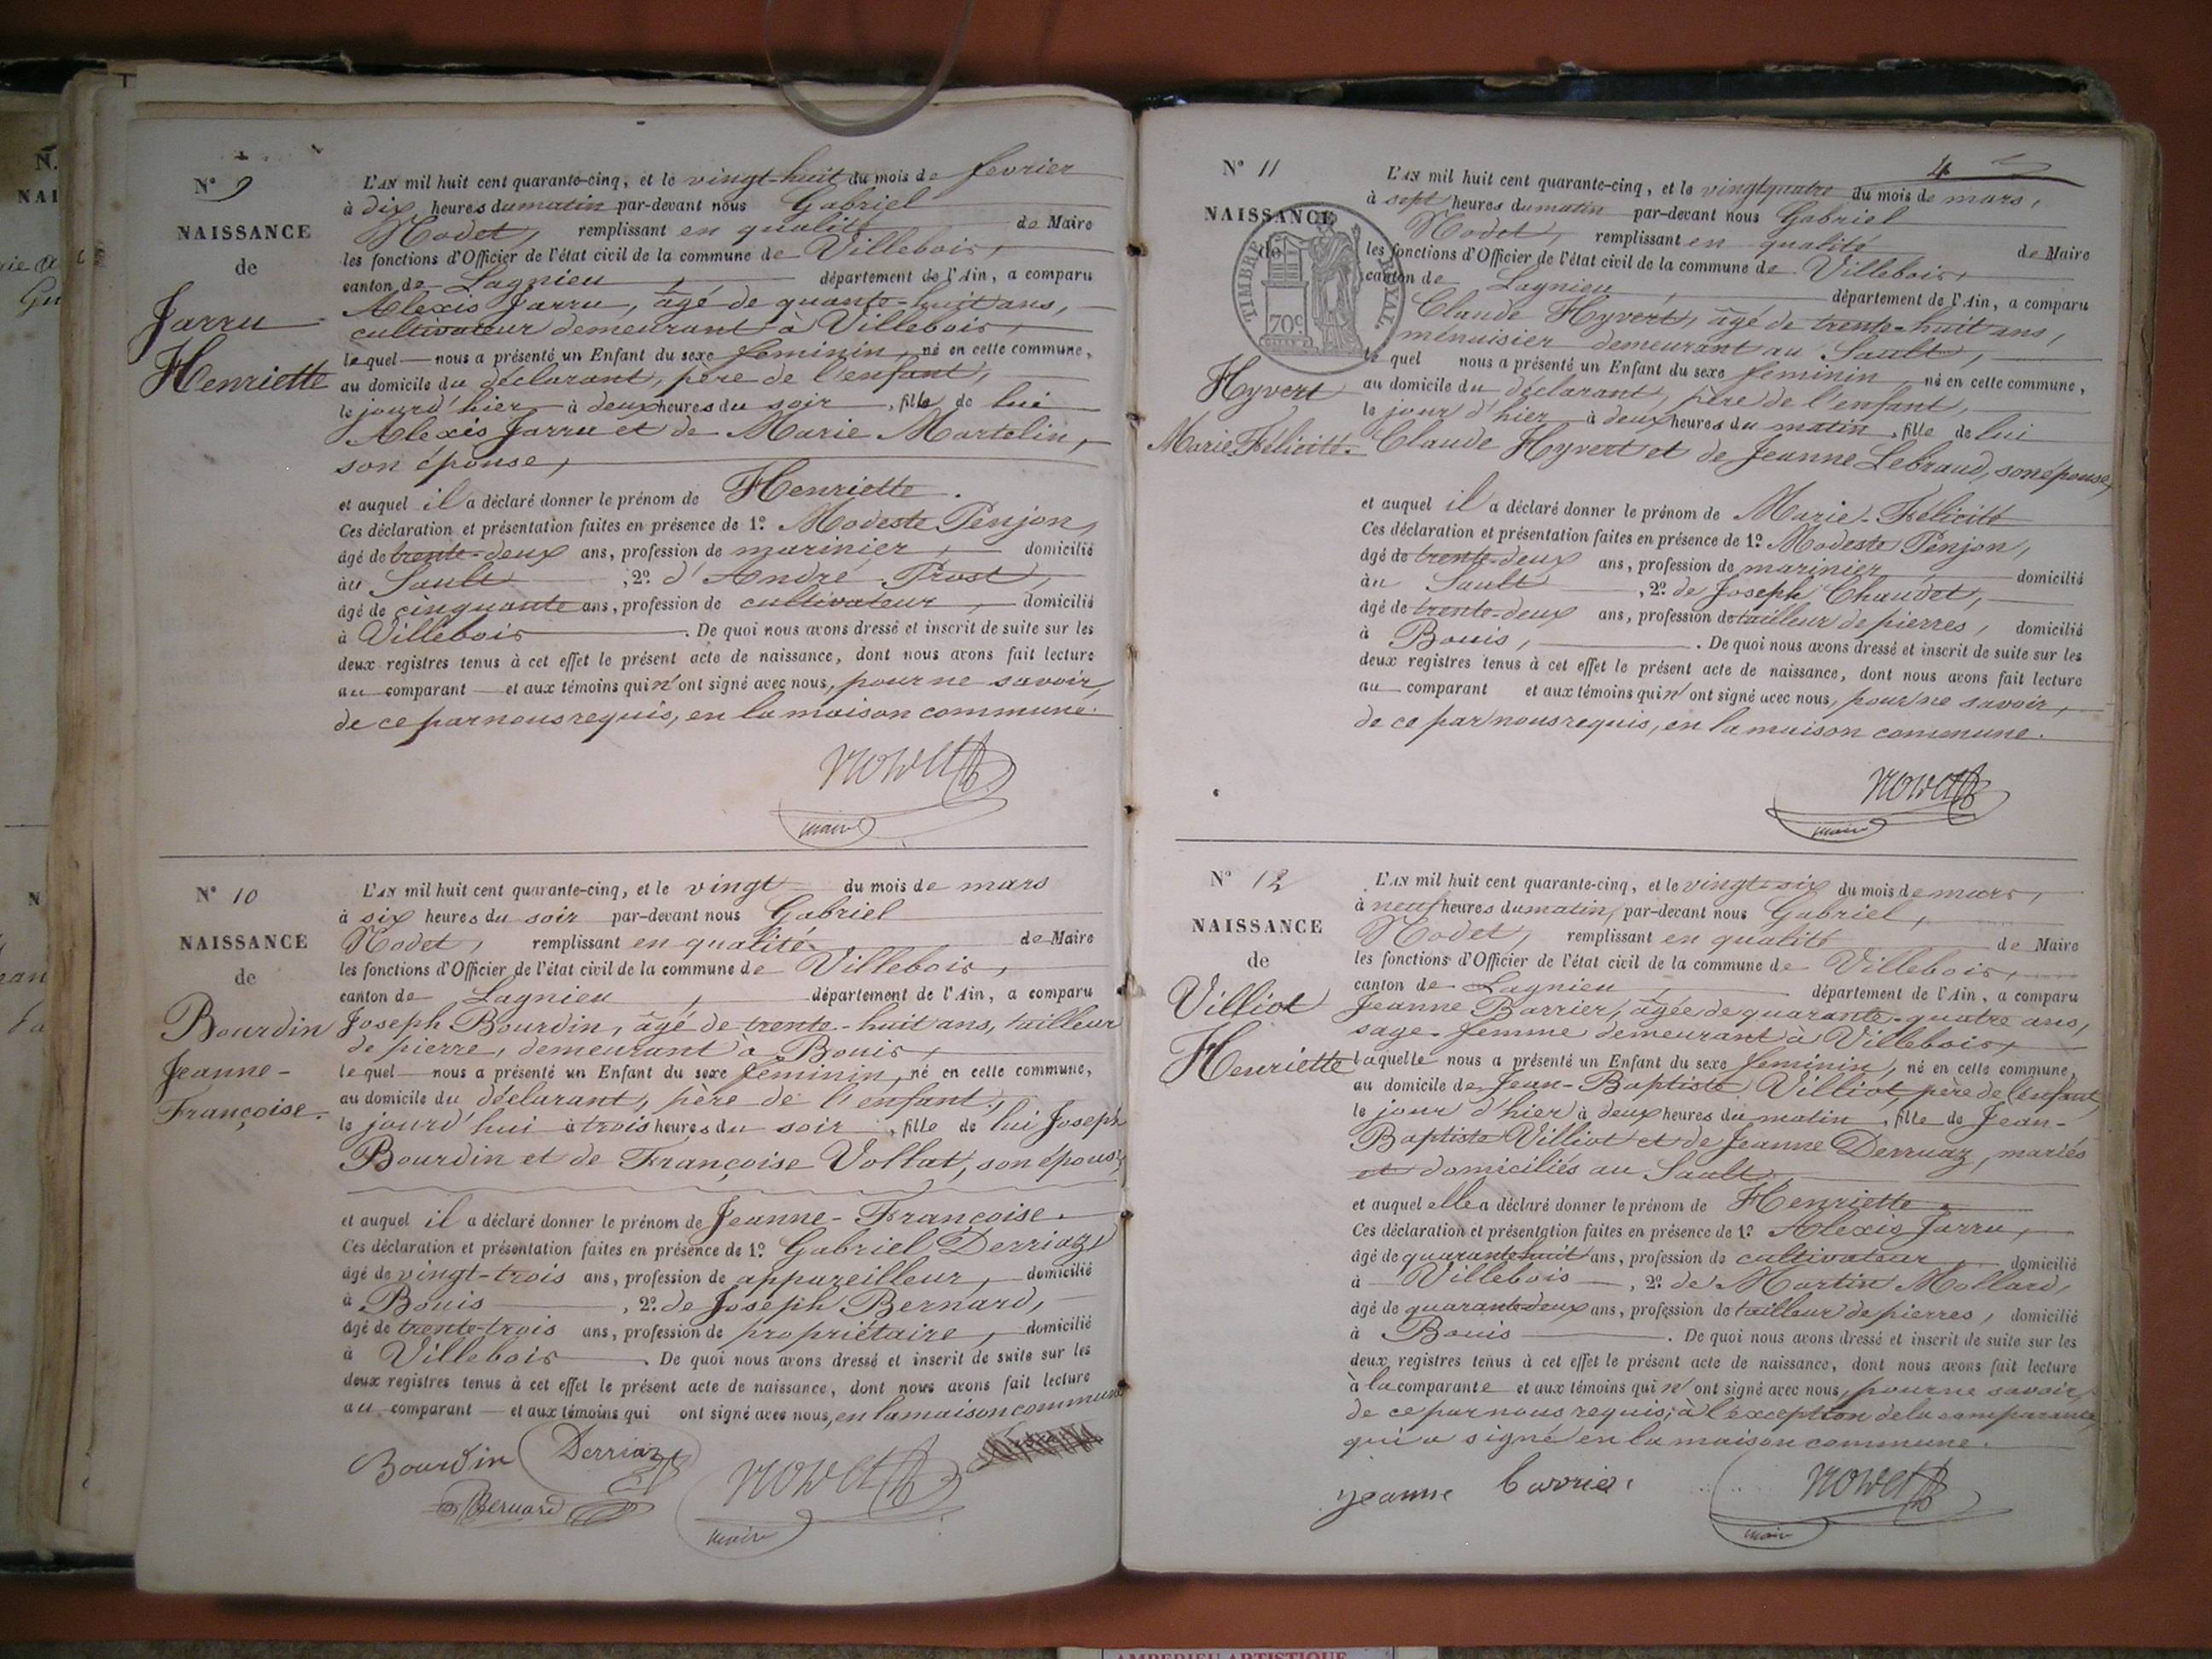 N° 9
NAISSANCE
de
Jarru
Henriette
L'AN mil huit cent quarante-cinq, et le vingt-huit du mois de fevrier
à dix heures du matin par-devant nous Gabriel
Nodet, remplissant en qualité de Maire
les fonctions d'Officier de l'état civil de la commune de Villebois,
canton de Lagnieu, département de l'Ain, a comparu
Alexis Jarru, âgé de quante-huit ans,
cultivateur demeurant à Villebois,
lequel nous a présenté un Enfant du sexe feminin, né en cette commune,
au domicile du déclarant, père de l'enfant,
le jourd'hier à deux heures du soir, fille de lui
Alexis Jarru et de Marie Martelin,
son épouse,
et auquel il a déclaré donner le prénom de Henriette.
Ces déclaration et présentation faites en présence de 1° Modeste Penjon,
âgé de trente-deux ans, profession de marinier, domicilié
au Sault, 2° d'André Prost,
âgé de cinquante ans, profession de cultivateur, domicilié
à Villebois. De quoi nous avons dressé et inscrit de suite sur les
deux registres tenus à cet effet le présent acte de naissance, dont nous avons fait lecture
au comparant et aux témoins qui n'ont signé avec nous, pour ne savoir,
de ce par nous requis, en la maison commune.
Nodet
maire
N° 10
NAISSANCE
de
Bourdin
Jeanne-
Françoise.
L'AN mil huit cent quarante-cinq, et le vingt du mois de mars
à six heures du soir par-devant nous Gabriel
Nodet, remplissant en qualité de Maire
les fonctions d'Officier de l'état civil de la commune de Villebois,
canton de Lagnieu, département de l'Ain, a comparu
Joseph Bourdin, âgé de trente-huit ans, tailleur
de pierre, demeurant à Bouis,
lequel nous a présenté un Enfant du sexe feminin, né en cette commune,
au domicile du déclarant, père de l'enfant,
le jourd'hui à trois heures du soir, fille de lui Joseph
Bourdin et de Françoise Vollat, son épouse,
et auquel il a déclaré donner le prénom de Jeanne-Françoise.
Ces déclaration et présentation faites en présence de 1° Gabriel Derriaz,
âgé de vingt-trois ans, profession de appareilleur, domicilié
à Bouis, 2° de Joseph Bernard,
âgé de trente-trois ans, profession de propriétaire, domicilié
à Villebois. De quoi nous avons dressé et inscrit de suite sur les
deux registres tenus à cet effet le présent acte de naissance, dont nous avons fait lecture
au comparant et aux témoins qui ont signé avec nous, en la maison commune
Bourdin Derriaz
Bernard Nodet
maire
4
N° 11
NAISSANCE
de
TIMBRE ROYAL
70c
Hyvert
Marie-Félicité.
L'AN mil huit cent quarante-cinq, et le vingt quatre du mois de mars,
à sept heures du matin par-devant nous Gabriel
Nodet, remplissant en qualité de Maire
les fonctions d'Officier de l'état civil de la commune de Villebois,
canton de Lagnieu, département de l'Ain, a comparu
Claude Hyvert, âgé de trente-huit ans,
ménuisier demeurant au Sault,
le quel nous a présenté un Enfant du sexe feminin né en cette commune,
au domicile du déclarant, père de l'enfant,
le jour d'hier à deux heures du matin, fille de lui
Claude Hyvert et de Jeanne Lebraud, son épouse,
et auquel il a déclaré donner le prénom de Marie-Félicité
Ces déclaration et présentation faites en présence de 1° Modeste Penjon,
âgé de trente-deux ans, profession de marinier, domicilié
au Sault, 2° de Joseph Chaudet,
âgé de trente-deux ans, profession de tailleur de pierres, domicilié
à Bouis,. De quoi nous avons dressé et inscrit de suite sur les
deux registres tenus à cet effet le présent acte de naissance, dont nous avons fait lecture
au comparant et aux témoins qui n'ont signé avec nous, pour ne savoir,
de ce par nous requis, en la maison commune.
Nodet
maire
N° 12
NAISSANCE
de
Villiot
Henriette
L'AN mil huit cent quarante-cinq, et le vingt-six du mois de mars,
à neuf heures du matin, par-devant nous Gabriel,
Nodet, remplissant en qualité de Maire
les fonctions d'Officier de l'état civil de la commune de Villebois,
canton de Lagnieu, département de l'Ain, a comparu
Jeanne Barrier, âgée de quarante-quatre ans,
sage-femme demeurant à Villebois,
laquelle nous a présenté un Enfant du sexe feminin, né en cette commune,
au domicile de Jean-Baptiste Villiot, père de l'enfant,
le jour d'hier à deux heures du matin, fille de Jean-
Baptiste Villiot et de Jeanne Derruaz, mariés
et domiciliés au Sault,
et auquel elle a déclaré donner le prénom de Henriette.
Ces déclaration et présentation faites en présence de 1° Alexis Jarru,
âgé de quarante huit ans, profession de cultivateur, domicilié
à Villebois, 2° de Martin Mollard,
âgé de quarante deux ans, profession de tailleur de pierres, domicilié
à Bouis. De quoi nous avons dressé et inscrit de suite sur les
deux registres tenus à cet effet le présent acte de naissance, dont nous avons fait lecture
à la comparante et aux témoins qui n'ont signé avec nous, pour ne savoir,
de ce par nous requis, à l'exception de la comparante,
qui a signé en la maison commune.
jeanne barrier Nodet
maire